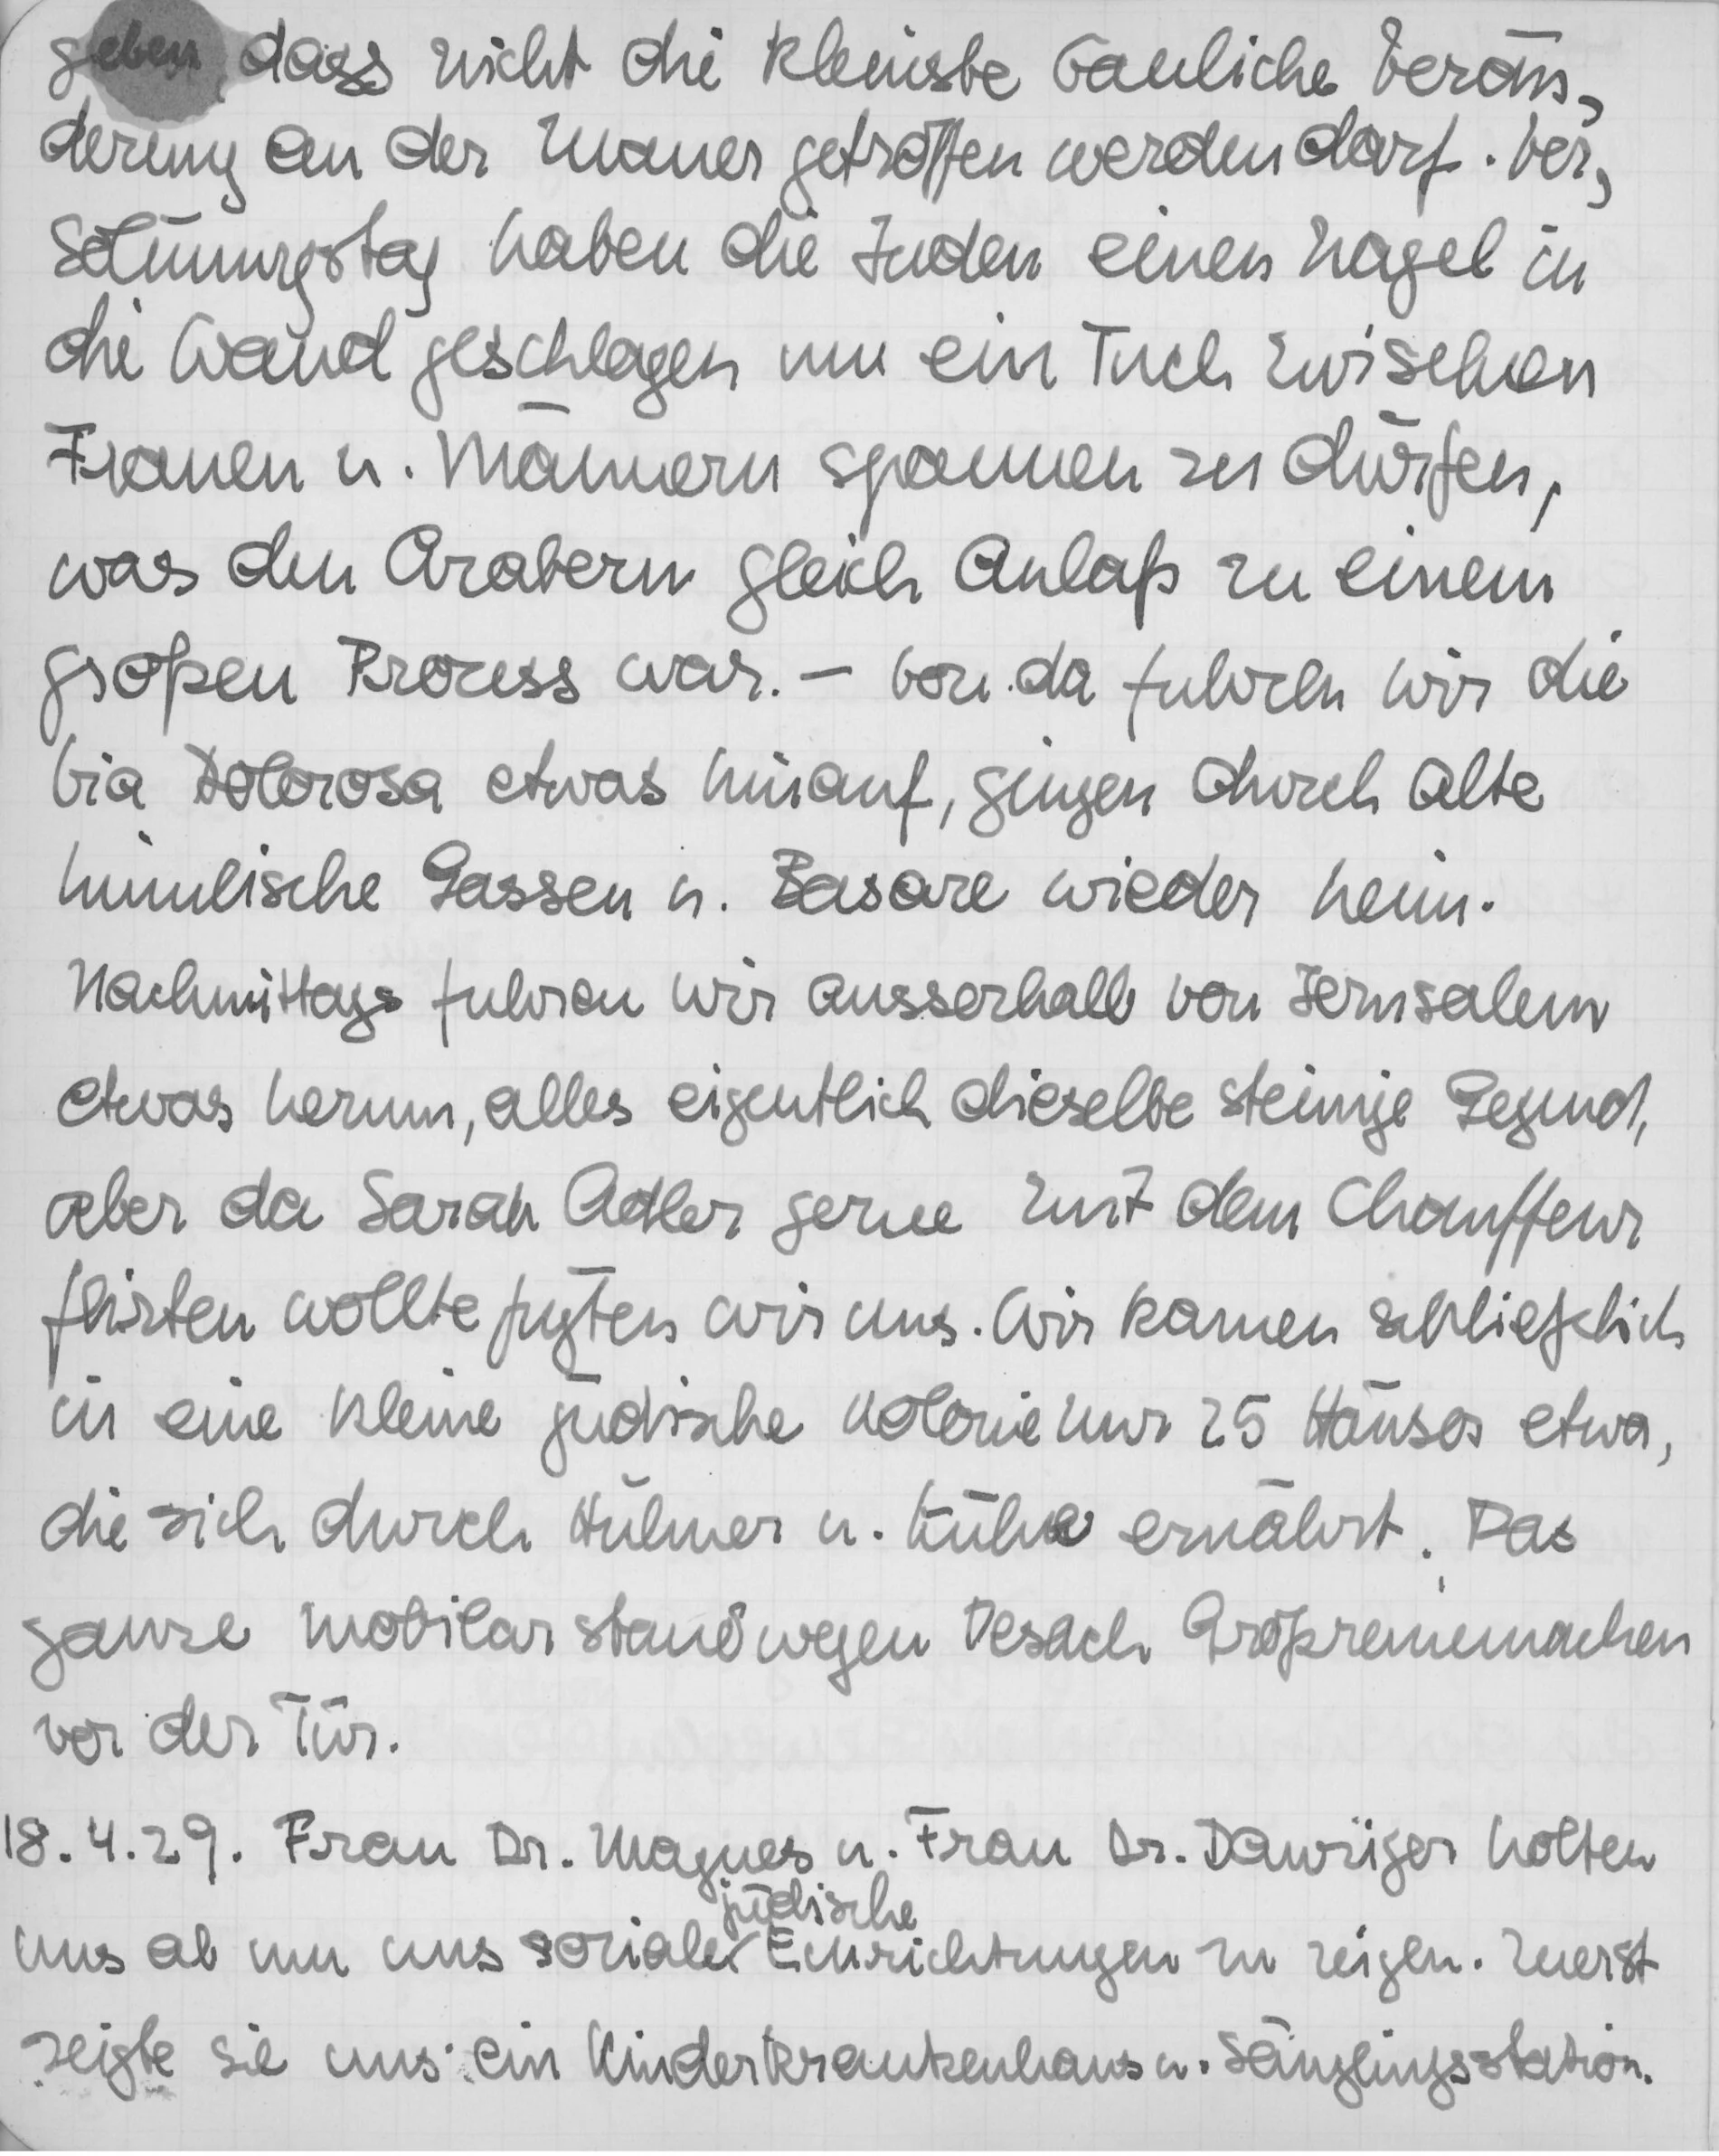 geben dass nicht die kleinste bauliche Verän-
derung an der Mauer getroffen werden darf. Ver-
söhnungstag haben die Juden einen Nagel in
die Wand geschlagen um ein Tuch zwischen
Frauen u. Männern spannen zu dürfen,
was den Arabern gleich Anlaß zu einem
großen Process war. – Von da fuhren wir die
Via Dolorosa etwas hinauf, gingen durch alte
himmlische Gassen u. Basare wieder heim.
Nachmittags fuhren wir ausserhalb von Jerusalem
etwas herum, alles eigentlich dieselbe steinige Gegend,
aber da Sarah Adler gerne mit dem Chauffeur
flirten wollte fügten wir uns. Wir kamen schließlich
in eine kleine jüdische Kolonie nur 25 Häuser etwa,
die sich durch Hühner u. Kühe ernährt. Das
ganze Mobilar stand wegen Pesach Großreinemachen
vor der Tür.
18.4.29. Frau Dr. Magnes u. Frau Dr. Danziger holten
uns ab um uns soziale jüdische Einrichtungen zu zeigen. Zuerst
zeigte sie uns ein Kinderkrankenhaus u. Säuglingsstation.